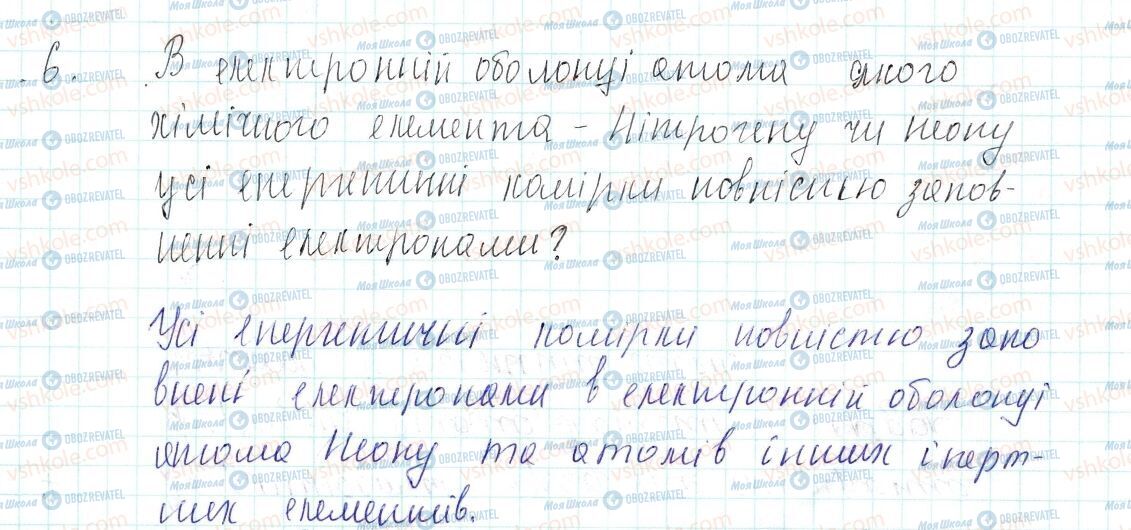 6. В електронній оболонці атома якого
хімічного елемента - Нітрогену чи Неону
усі енергетичні комірки повністю запов-
ненні електронами?
Усі енергетичні комірки повністю запо
внені електронами в електронній оболонці
атома Неону та атомів інших інерт-
них елементів.